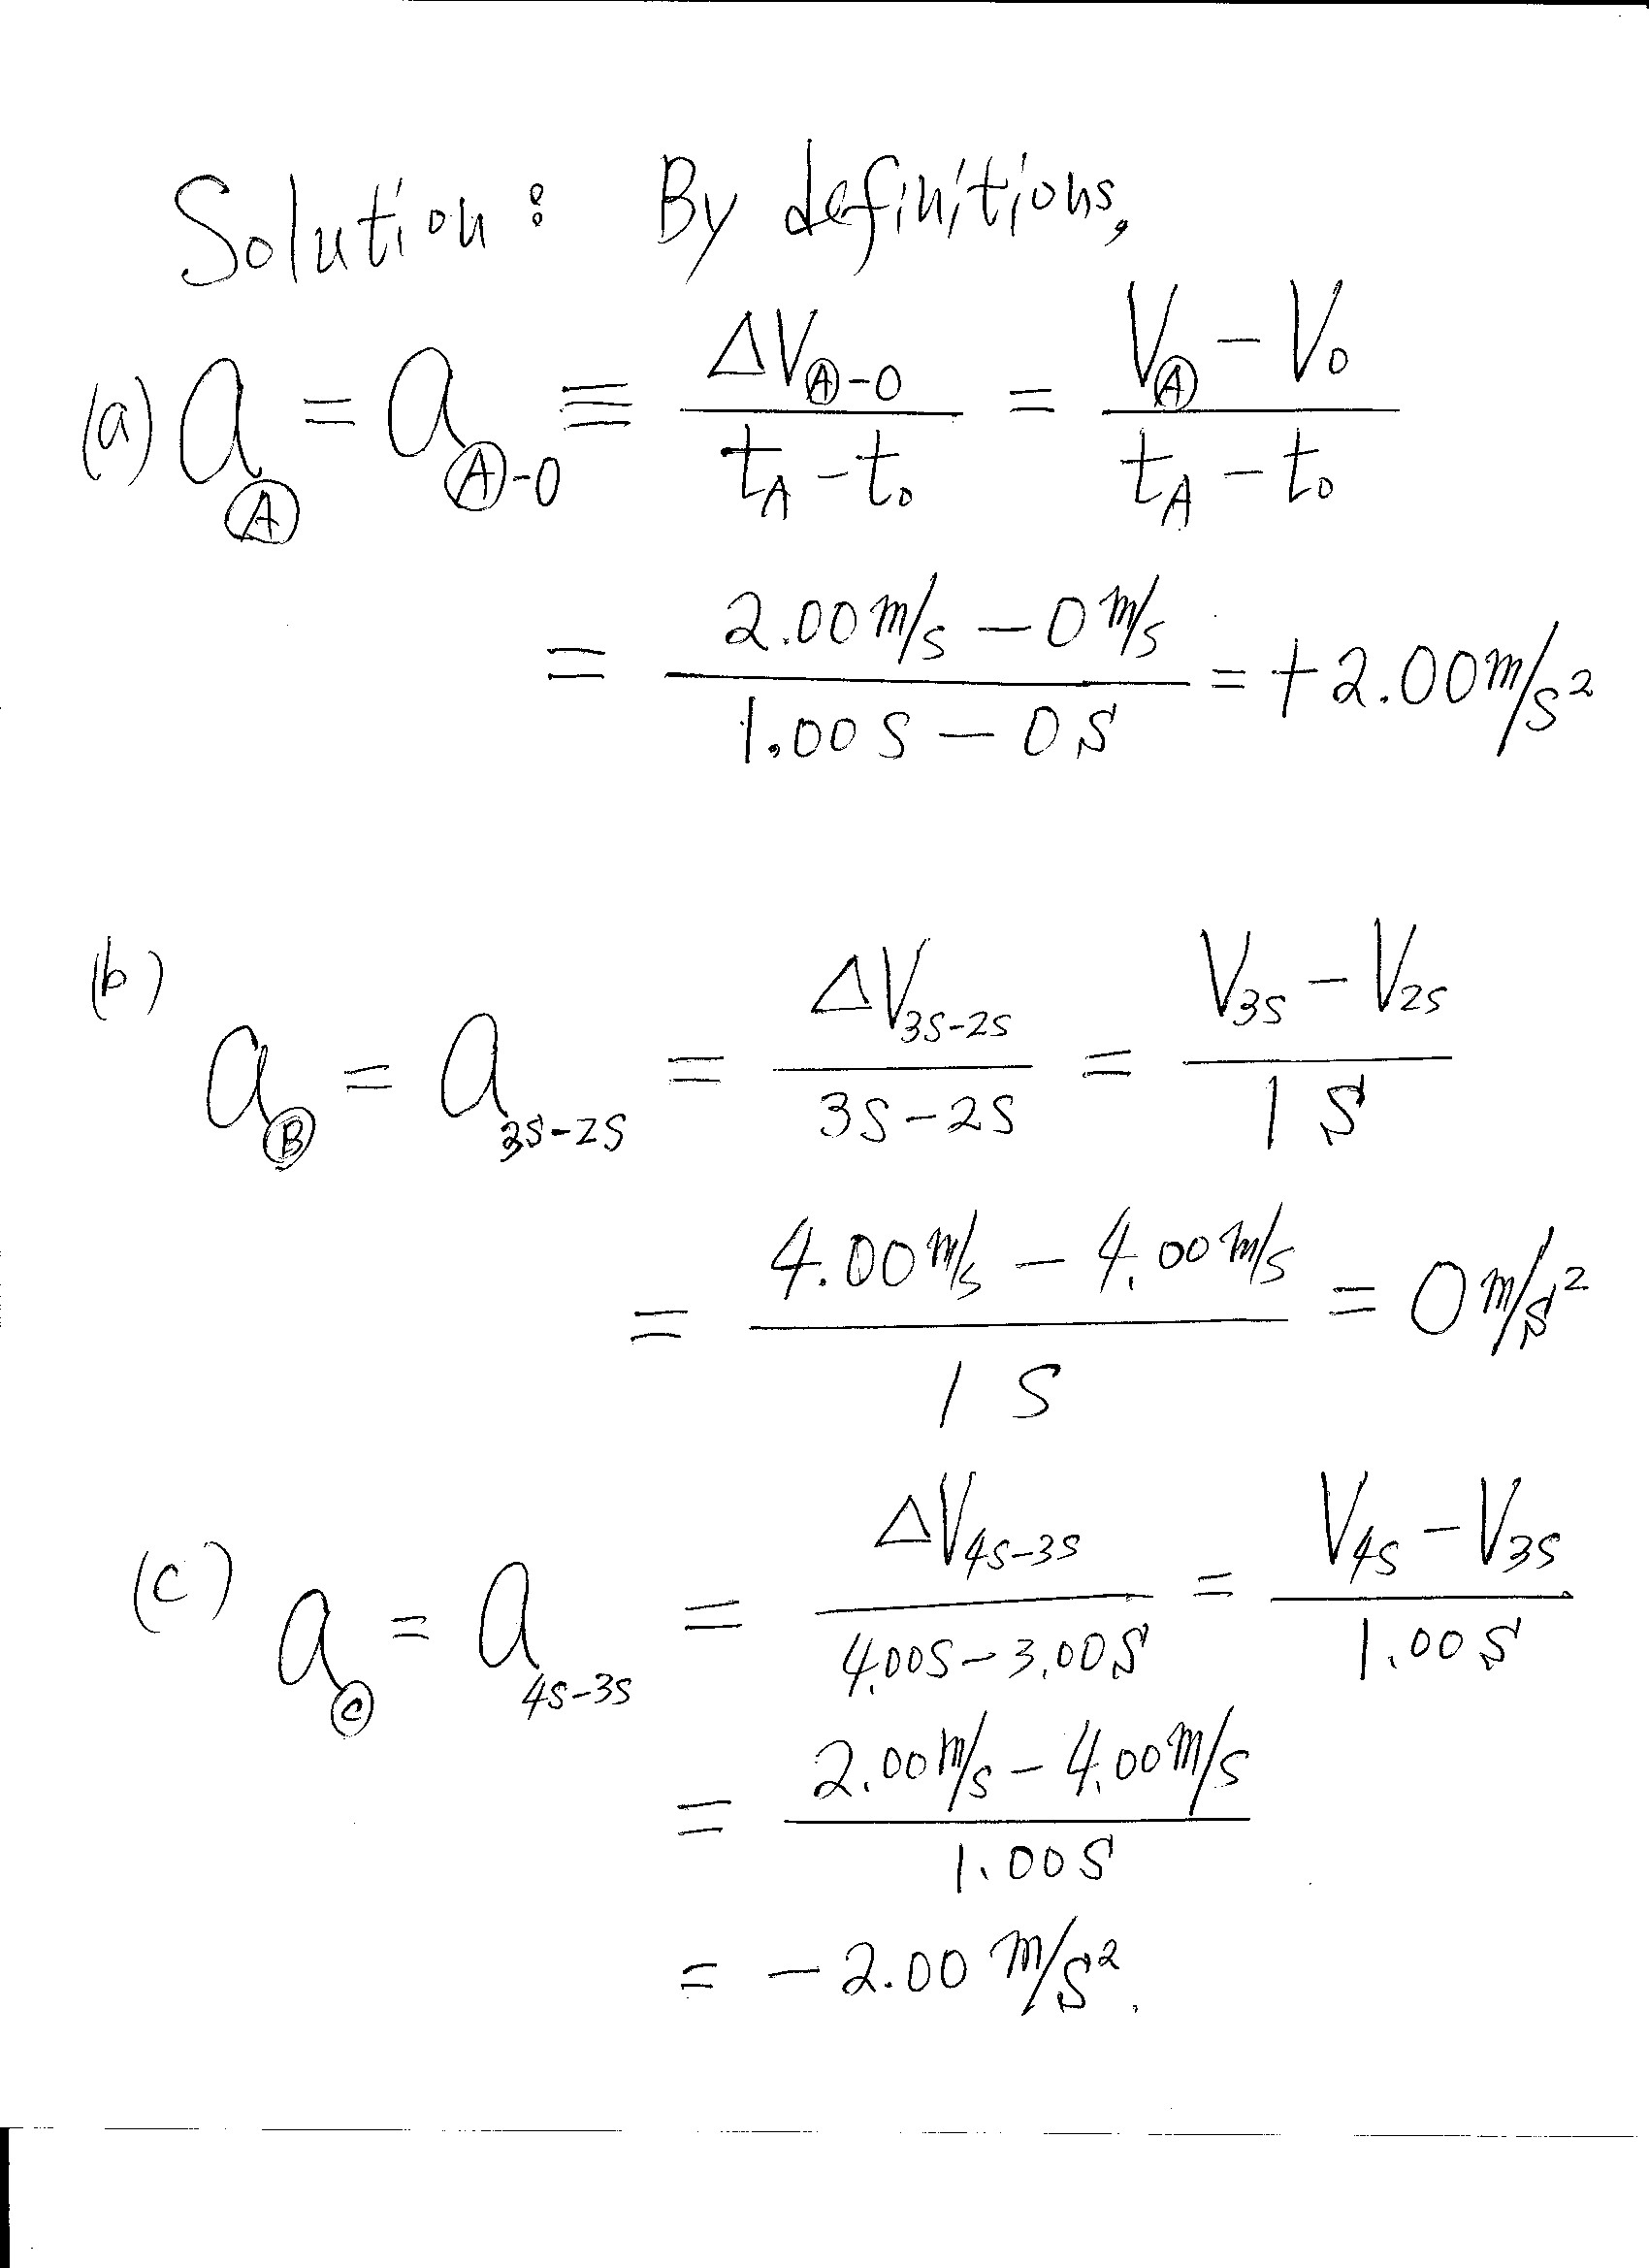 Solution: By definitions,
(a) a_Ⓐ = a_Ⓐ-0 ≡ ΔV_Ⓐ-0 / (t_A - t_0) = (V_Ⓐ - V_0) / (t_A - t_0)
= (2.00 m/s - 0 m/s) / (1.00 s - 0 s) = +2.00 m/s²
(b)
a_Ⓑ = a_3s-2s = ΔV_3s-2s / (3s-2s) = (V_3s - V_2s) / 1 s
= (4.00 m/s - 4.00 m/s) / 1 s = 0 m/s²
(c) a_Ⓒ = a_4s-3s = ΔV_4s-3s / (4.00s-3.00s) = (V_4s - V_3s) / 1.00 s
= (2.00 m/s - 4.00 m/s) / 1.00 s
= -2.00 m/s².